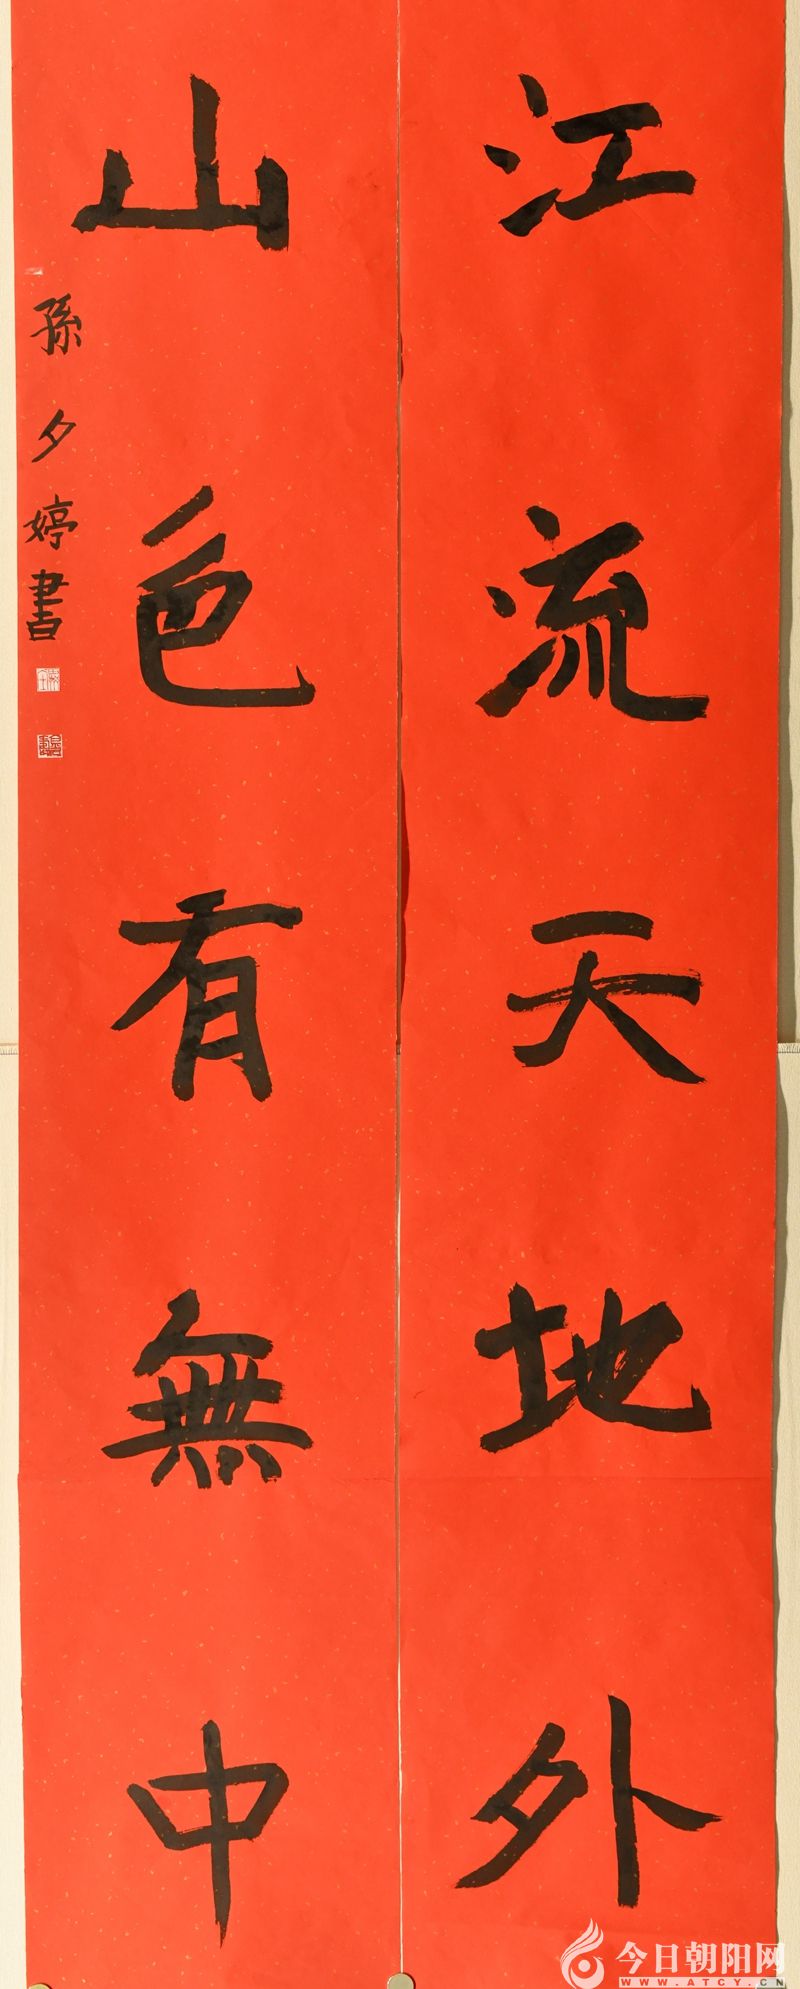 江流天地外
山色有無中
孫夕婷書
今日朝阳网
WWW.ATCY.CN